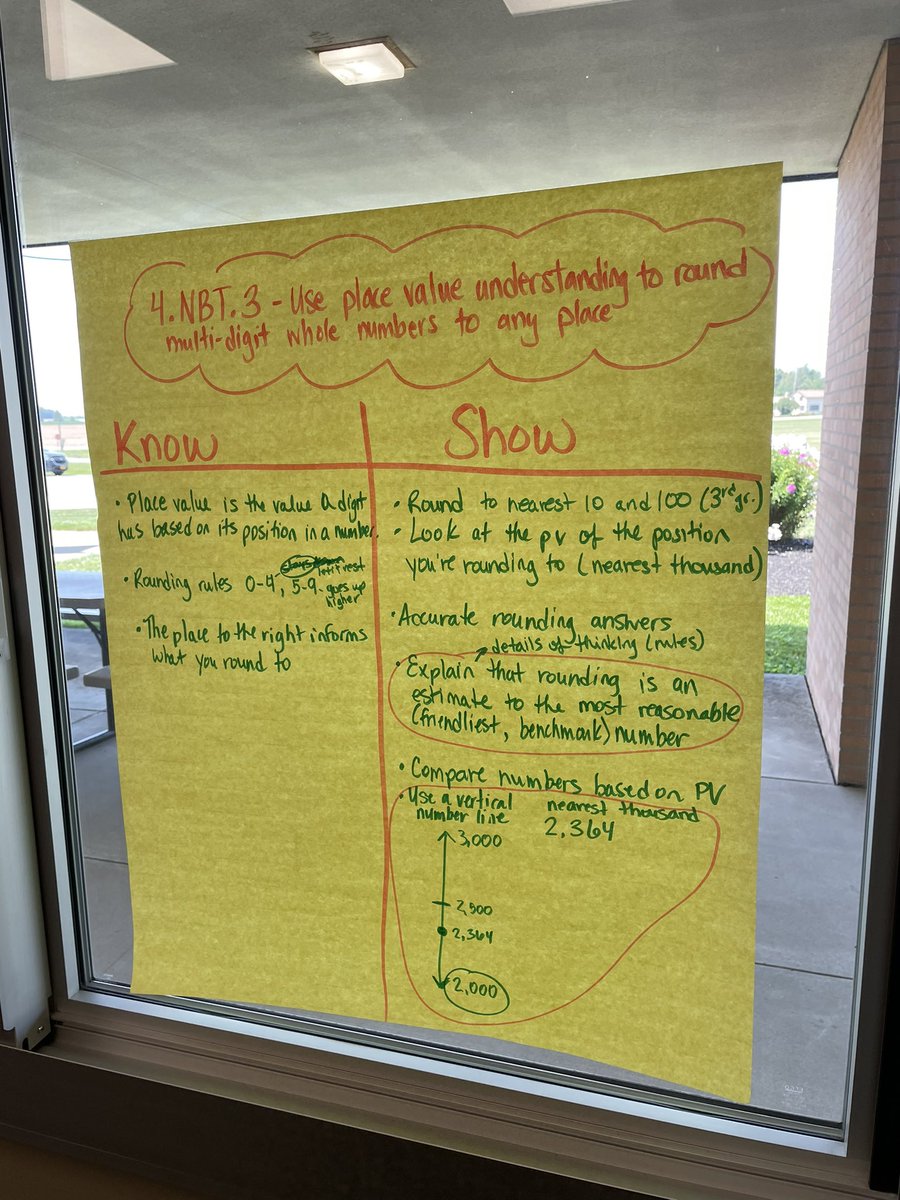 4.NBT.3 - Use place value understanding to round
multi-digit whole numbers to any place
Know
• Place value is the value a digit
has based on its position in a number.
• Rounding rules 0-4, let it rest
5-9 - goes up
higher
• The place to the right informs
what you round to
Show
• Round to nearest 10 and 100 (3rd gr.)
• Look at the pv of the position
you're rounding to (nearest thousand)
• Accurate rounding answers
details of thinking (rules)
• Explain that rounding is an
estimate to the most reasonable
(friendliest, benchmark) number
• Compare numbers based on PV
• Use a vertical
number line
nearest thousand
2,364
3,000
2,500
2,364
2,000